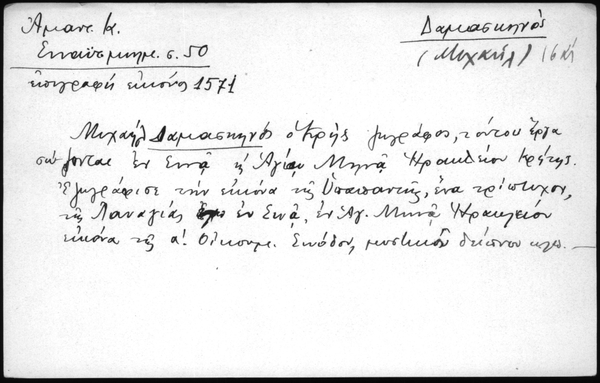 Ἄμαντ. Κ.
Σιναϊτ. μνημ. σ. 50
ἐπιγραφή εἰκόνος 1571
Δαμασκηνός
(Μιχαήλ) 16
Μιχαήλ Δαμασκηνός ὁ Κρής ζωγράφος, τούτου ἔργα
σώζονται ἐν Σινᾷ κ Ἁγίῳ Μηνᾷ Ἡρακλείου Κρήτης.
Ἐζωγράφισε τήν εἰκόνα τῆς Ὑπαπαντῆς, ἕνα τρίπτυχον,
τῆς Παναγίας ἐν Σινᾷ, ἐν Ἁγ. Μηνᾷ Ἡρακλείου
εἰκόνα τῆς α! Οἰκουμ. Συνόδου, μυστικοῦ δείπνου κλπ. —